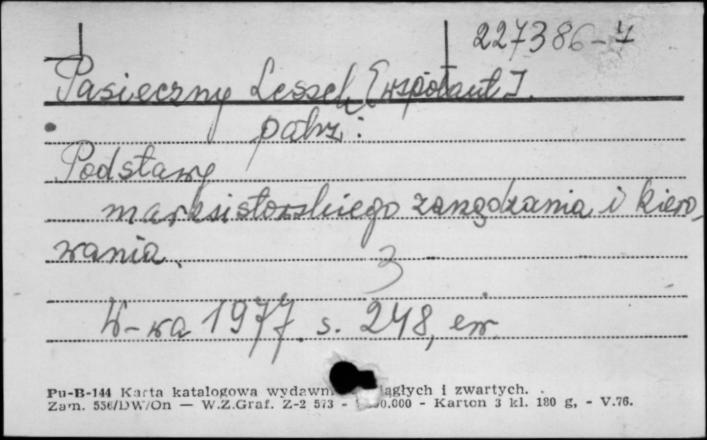 227386-7
Pasieczny Leszek [współaut].
patrz:
Podstawy
marksistowskiego zarządzania i kiero-
wania.
3
W-wa 1977. s. 248, err.
Pu-B-144 Karta katalogowa wydawn ągłych i zwartych.
Zam. 556/DW/On — W.Z.Graf. Z-2 573 - 0.000 - Karton 3 kl. 180 g, - V.76.